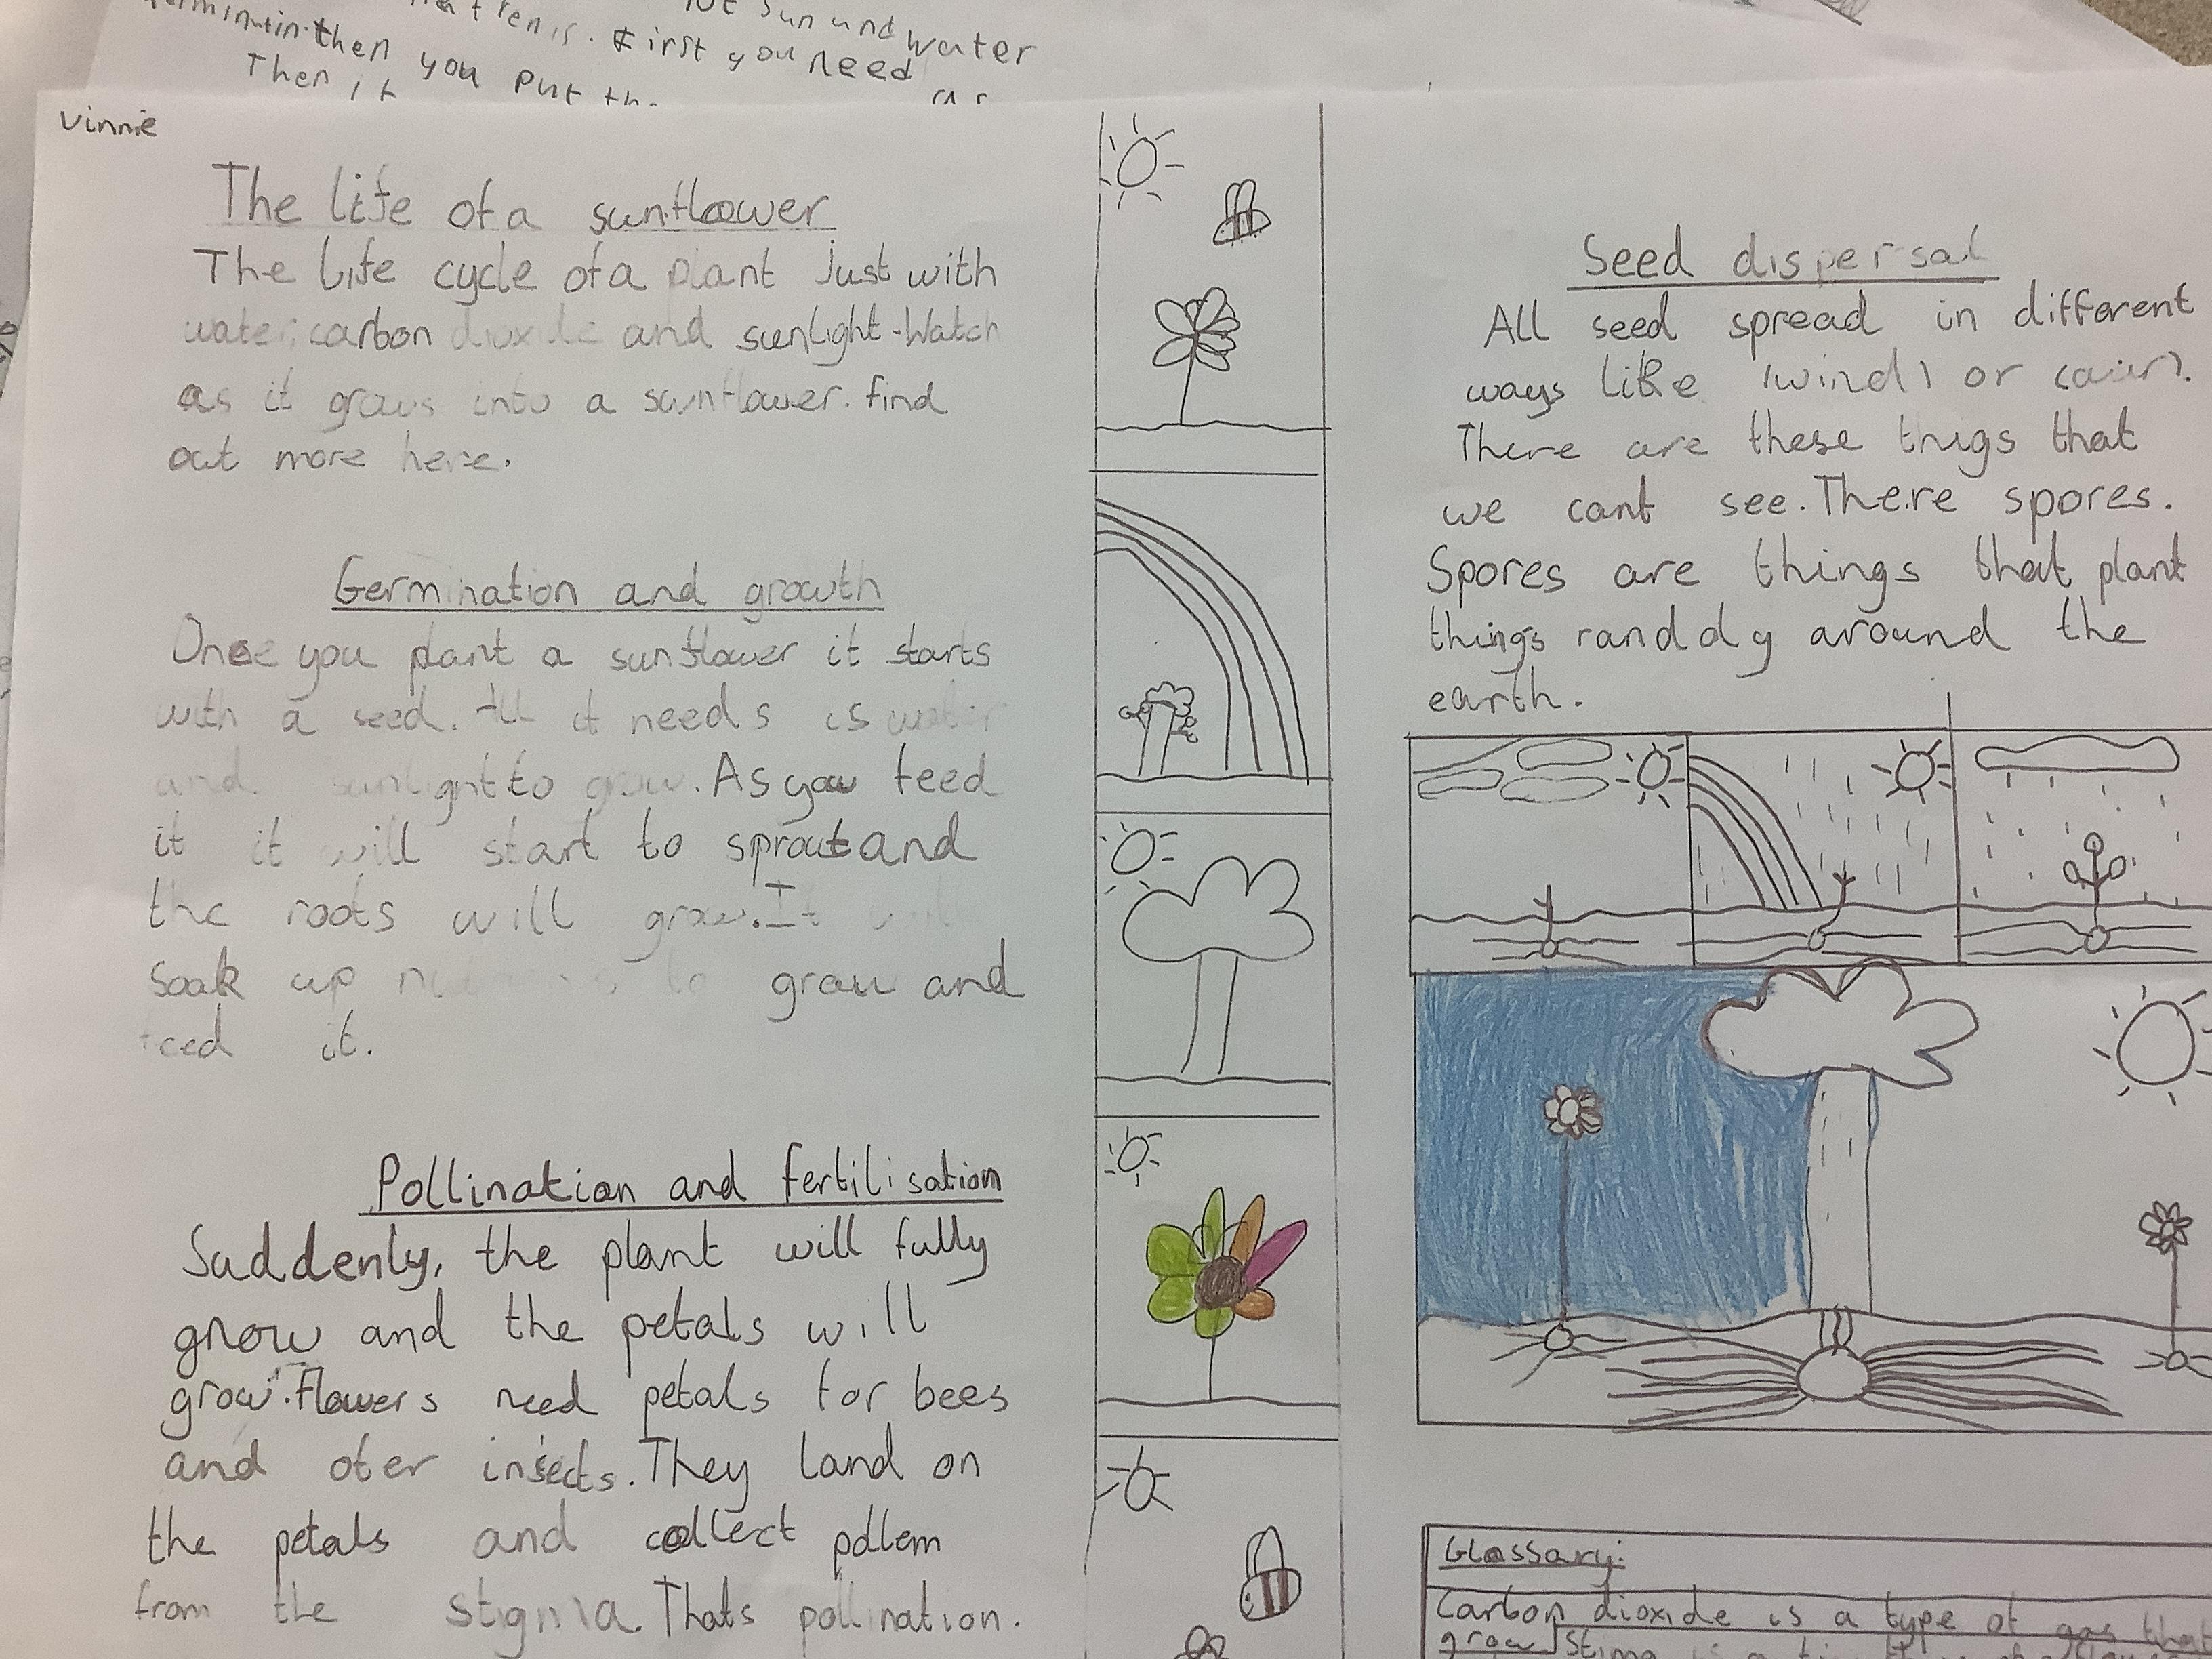 then you put
Then it
First you need
sun and water
Vinnie
The life of a sunfloower
The life cycle of a plant just with
water, carbon dioxide and sunlight. Watch
as it grows into a sunflower. find
out more here.
Germination and growth
Once you plant a sunflower it starts
with a seed. All it needs is water
and sunlight to grow. As you feed
it it will start to sprout and
the roots will grow. It will
soak up to grow and
feed it.
Pollination and fertilisation
Suddenly, the plant will fully
grow and the petals will
grow. Flowers need petals for bees
and oter insects. They land on
the petals and collect pollem
from the stigma. Thats pollination.
Seed dispersal
All seed spread in different
ways like (wind) or (air).
There are these thigs that
we cant see. There spores.
Spores are things that plant
things randdly around the
earth.
Glossary:
Carbon dioxide is a type of gas that
grow